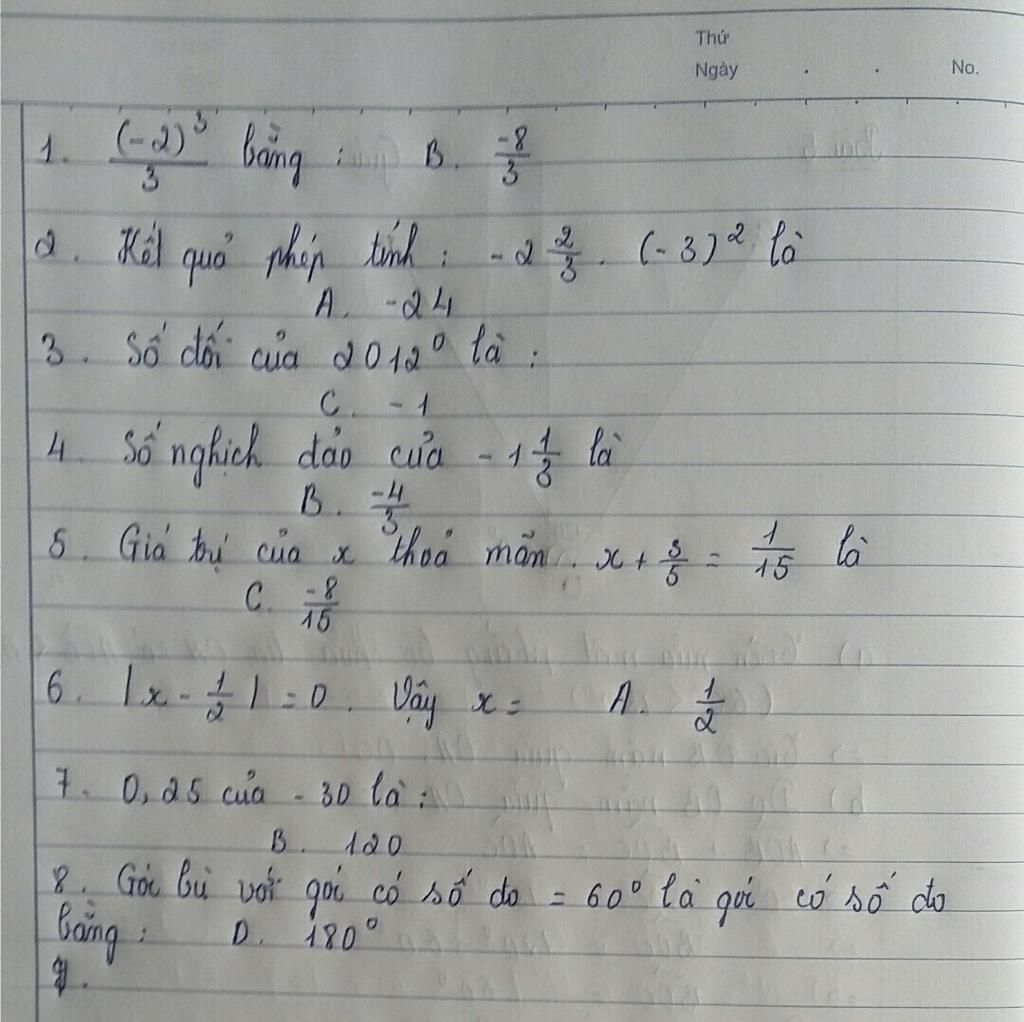 Thứ
Ngày . . No.
1. (-2)³/3 bằng : B. -8/3
2. Kết quả phép tính : -2 2/3 . (-3)² là
A. -24
3. Số đối của 2012⁰ là :
C. -1
4. Số nghịch đảo của -1 1/3 là
B. -4/3
5. Giá trị của x thoả mãn . x + 3/5 = 1/15 là
C. -8/15
6. |x - 1/2| = 0 . Vậy x = A. 1/2
7. 0,25 của -30 là :
B. 120
8. Góc bù với góc có số đo = 60⁰ là góc có số đo
bằng : D. 180⁰